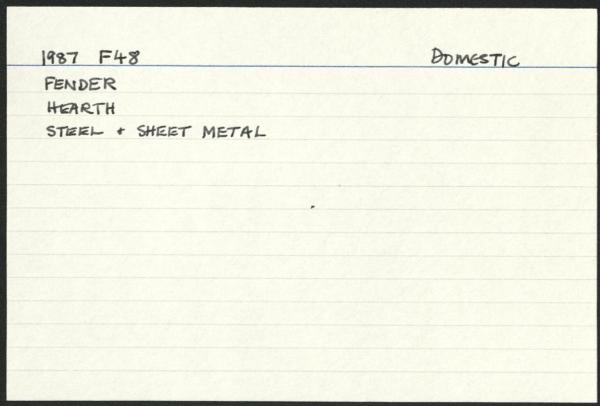 1987 F48 DOMESTIC
FENDER
HEARTH
STEEL + SHEET METAL